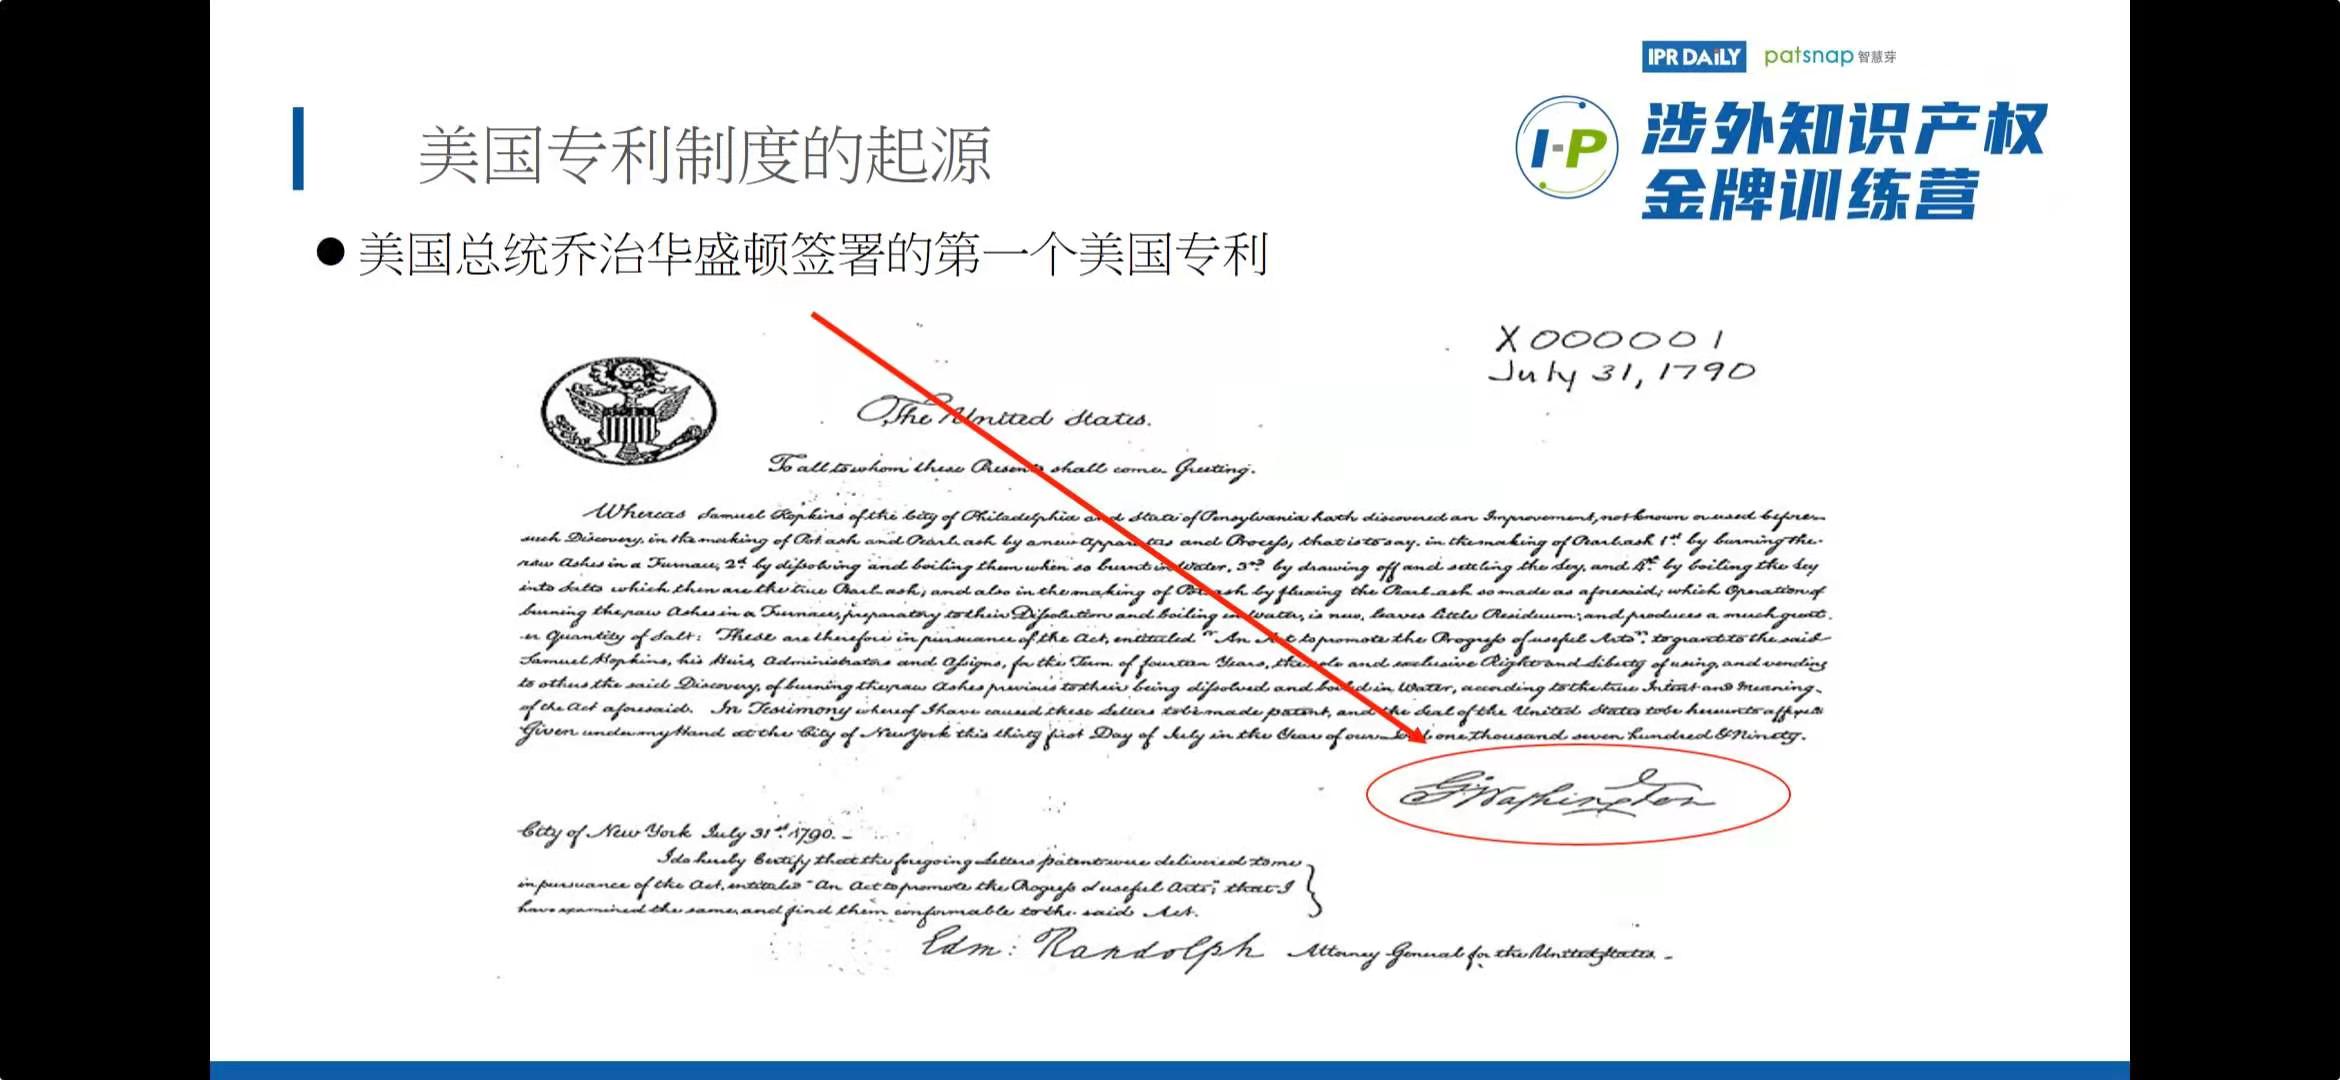 IPR DAILY patsnap 智慧芽
I-P 涉外知识产权
金牌训练营
美国专利制度的起源
美国总统乔治华盛顿签署的第一个美国专利
X000001
July 31, 1790
The United States.
To all to whom these Presents shall come Greeting.
Whereas Samuel Hopkins of the City of Philadelphia and State of Pensylvania hath discovered an Improvement, not known or used before
such Discovery, in the making of Pot ash and Pearl ash by a new Apparatus and Process, that is to say, in the making of Pearl ash 1st by burning the
raw Ashes in a Furnace, 2d by dissolving and boiling them when so burnt in Water, 3rd by drawing off and settling the Ley, and 4th by boiling the Ley
into Salts which then are the true Pearl ash; and also in the making of Pot ash by fluxing the Pearl ash so made as aforesaid; which Operation of
burning the raw Ashes in a Furnace, preparatory to their Dissolution and boiling in Water, is new, leaves little Residuum; and produces a much great
er Quantity of Salt: These are therefore in pursuance of the Act, entituled "An Act to promote the Progress of useful Arts", to grant to the said
Samuel Hopkins, his Heirs, Administrators and Assigns, for the Term of fourteen Years, the sole and exclusive Right and Liberty of using, and vending
to others the said Discovery, of burning the raw Ashes previous to their being dissolved and boiled in Water, according to the true Intent and Meaning
of the Act aforesaid. In Testimony whereof I have caused these Letters to be made patent, and the Seal of the United States to be hereunto affixed
Given under my Hand at the City of New York this thirty first Day of July in the Year of our Lord one thousand seven hundred & Ninety.
G. Washington
City of New York July 31st 1790. -
I do hereby Certify that the foregoing Letters patent were delivered to me
in pursuance of the Act, entituled "An Act to promote the Progress of useful Arts"; that I
have examined the same, and find them conformable to the said Act.
Edm: Randolph Attorney General for the United States. -